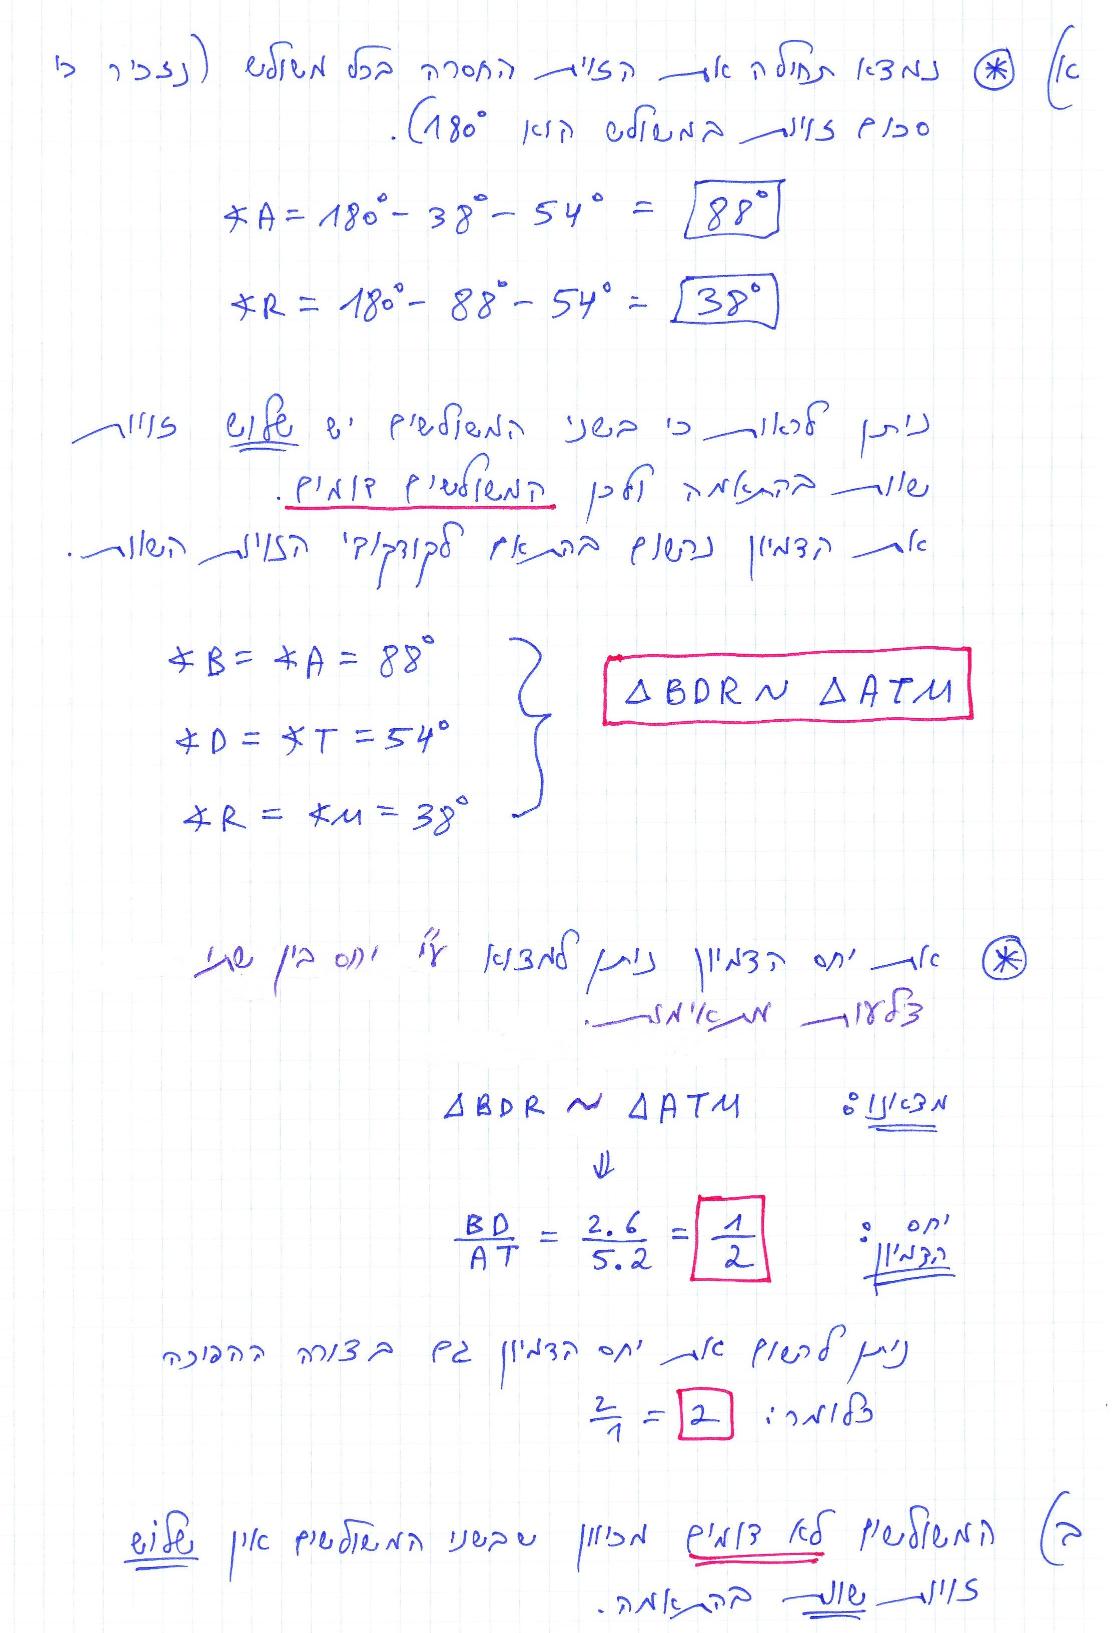 א) ⊛ נמצא תחילה את הזוית החסרה בכל משולש (נזכיר כי
סכום זוית במשולש הוא 180°).
∢A = 180° - 38° - 54° = 88°
∢R = 180° - 88° - 54° = 38°
ניתן לראות כי בשני המשולשים יש שלוש זוויות
שוות בהתאמה ולכן המשולשים דומים.
את הדמיון נרשום בהתאם לקודקודי הזוית השוות.
∢B = ∢A = 88°
∢D = ∢T = 54°
∢R = ∢M = 38°
ΔBDR ~ ΔATM
⊛ את יחס הדמיון ניתן למצוא ע"י יחס בין שתי
צלעות מתאימות.
מצאנו: ΔBDR ~ ΔATM
⇓
יחס הדמיון: BD/AT = 2.6/5.2 = 1/2
ניתן לרשום את יחס הדמיון גם בצורה ההפוכה
כלומר: 2/1 = 2
ב) המשולשים לא דומים מכיוון שבשני המשולשים אין שלוש
זוית שוות בהתאמה.